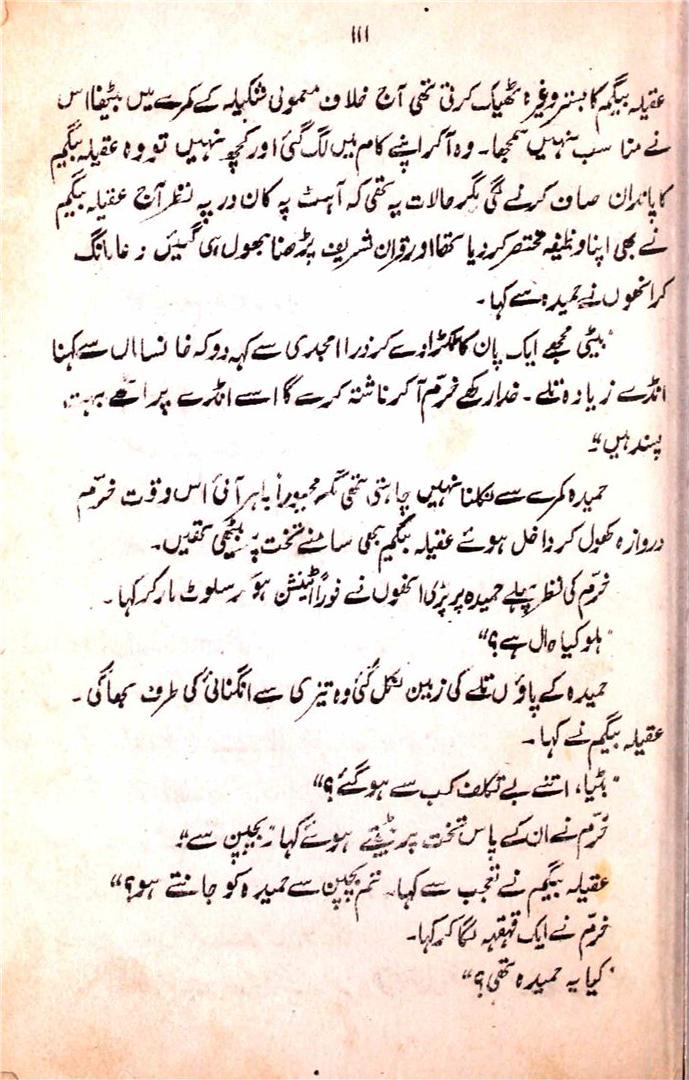 ۱۱۱
عقیلہ بیگم کا بستر وغیرہ ٹھیک کرتی تھی آج خلاف معمولی شکیلہ کے کمرے میں بیٹھنا اس
نے مناسب نہیں سمجھا۔ وہ آکر اپنے کام میں لگ گئی اور کچھ نہیں تو وہ عقیلہ بیگم
کا پاندان صاف کرنے لگی مگر حالات یہ تھی کہ آہٹ پہ کان در پہ نظر آج عقیلہ بیگم
نے بھی اپنا وظیفہ مختصر کر دیا تھا اور قران شریف پڑھنا بھول ہی گئیں دعا مانگ
کر انھوں نے حمیدہ سے کہا۔
"بیٹی مجھے ایک پان کا ٹکڑا دے کر ذرا امجدی سے کہہ دو کہ خانساماں سے کہنا
انڈے زیادہ تلے۔ خدا رکھے خرّم آکر ناشتہ کرے گا اسے انڈے پراٹھے بہت
پسند ہیں"۔
حمیدہ کمرے سے نکلنا نہیں چاہتی تھی مگر مجبوراً باہر آئی اس وقت خرّم
دروازہ کھول کر داخل ہوئے عقیلہ بیگم بھی سامنے تخت پہ بیٹھی تھیں۔
خرّم کی نظر پہلے حمیدہ پر پڑی انھوں نے فوراً اٹینشن ہو کر سلوٹ مار کر کہا۔
"ہلو کیا حال ہے؟"
حمیدہ کے پاؤں تلے کی زمین نکل گئی وہ تیزی سے انگنائی کی طرف بھاگی۔
عقیلہ بیگم نے کہا۔
"بٹیا، اتنے بے تکلف کب سے ہو گئے؟"
خرّم نے ان کے پاس تخت پر بیٹھتے ہوئے کہا "بچپن سے"۔
عقیلہ بیگم نے تعجب سے کہا۔ تم بچپن سے حمیدہ کو جانتے ہو؟"
خرّم نے ایک قہقہہ لگا کر کہا۔
"کیا یہ حمیدہ تھی؟"